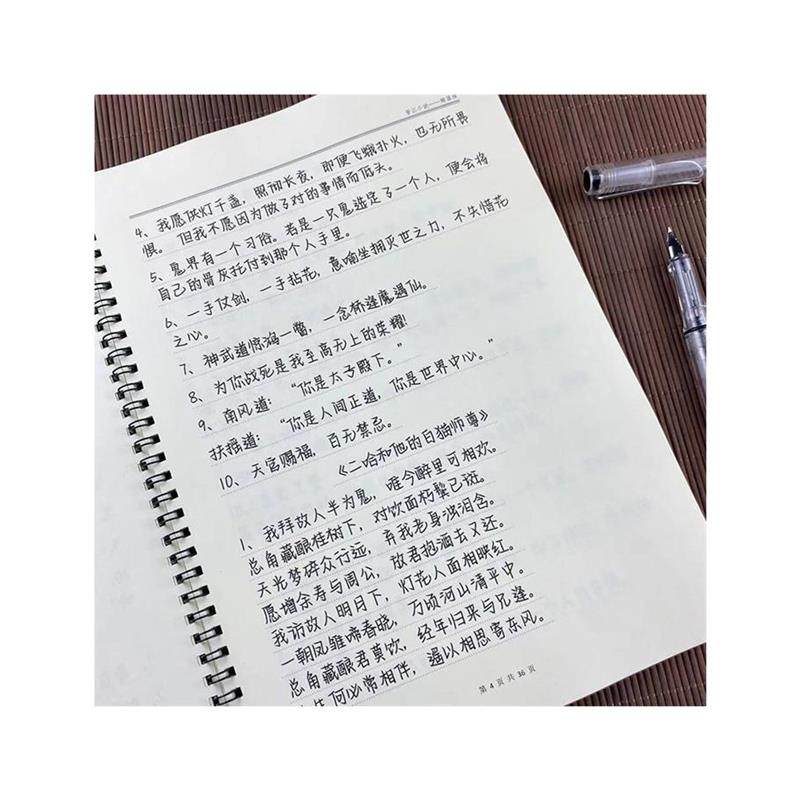 4、我愿供灯千盏，照彻长夜，即便飞蛾扑火，也无所畏
惧。但我不愿因为做了对的事情而低头。
5、鬼界有一个习俗。若是一只鬼选定了一个人，便会将
自己的骨灰托付到那个人手里。
6、一手仗剑，一手拈花，意响坐拥灭世之力，不失惜花
之心。
7、神武道惊鸿一瞥，一念桥逢魔遇仙。
8、为你战死是我至高无上的荣耀！
9、南风道：“你是太子殿下。”
扶摇道：“你是人间正道，你是世界中心。”
10、天官赐福，百无禁忌。
《二哈和他的白猫师尊》
1、我拜故人半为鬼，唯今醉里可相欢。
总角藏酿桂树下，对饮面朽鬓已斑。
天光梦碎众行远，弃我老身浊泪含。
愿增余寿与周公，放君抱酒去又还。
我访故人明日下，灯花人面相映红。
一朝凤雏啼春晓，万顷河山清平中。
总角藏酿君莫饮，经年归来与兄逢。
生何必常相伴，遏以相思寄东风。
第 4 页 共 36 页